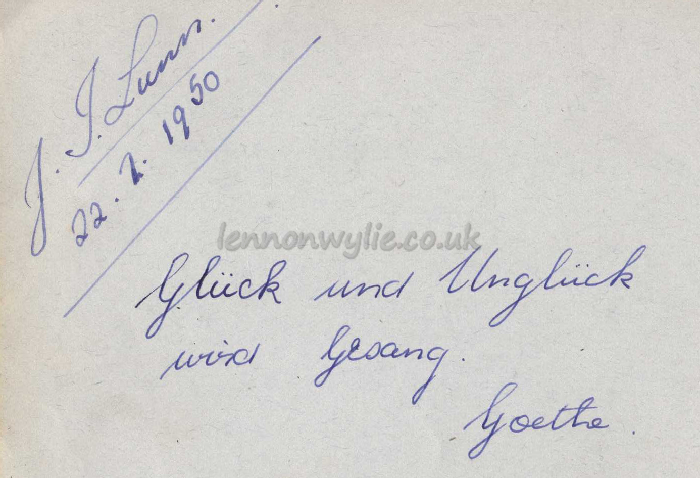 J. I. Lunn.
22. 2. 1950
lennonwylie.co.uk
Glück und Unglück
wird Gesang.
Goethe.